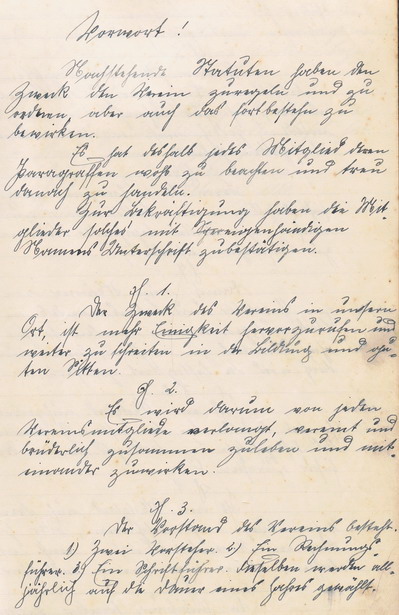 Vorwort!
Nachstehende Statuten haben den
Zweck den Verein zuregeln und zu
ordnen, aber auch das fortbestehn zu
bewirken.
Es hat deshalb jedes Mitglied deren
Paragraffen wohl zu beachten und treu
danach zu handeln.
Zur Bekräftigung haben die Mit-
glieder solches mit Ihrer eigenhändigen
Namens Unterschrift zubestätigen.
§. 1.
Der Zweck des Vereins in unsern
Ort, ist mehr Einigkeit hervorzurufen und
weiter zu schreiten in der Bildung und gu-
ten Sitten.
§. 2.
Es wird darum von jeden
Vereinsmitgliede verlangt, vereint und
brüderlich zusammen zuleben und mit-
einander zuwirken.
§. 3.
Der Vorstand des Vereins besteht.
1) Zwei Vorsteher. 2.) Ein Rechnungs-
führer. 3) Ein Schriftführer. dieselben werden all-
jährlich auf die dauer eines Jahres gewählt.